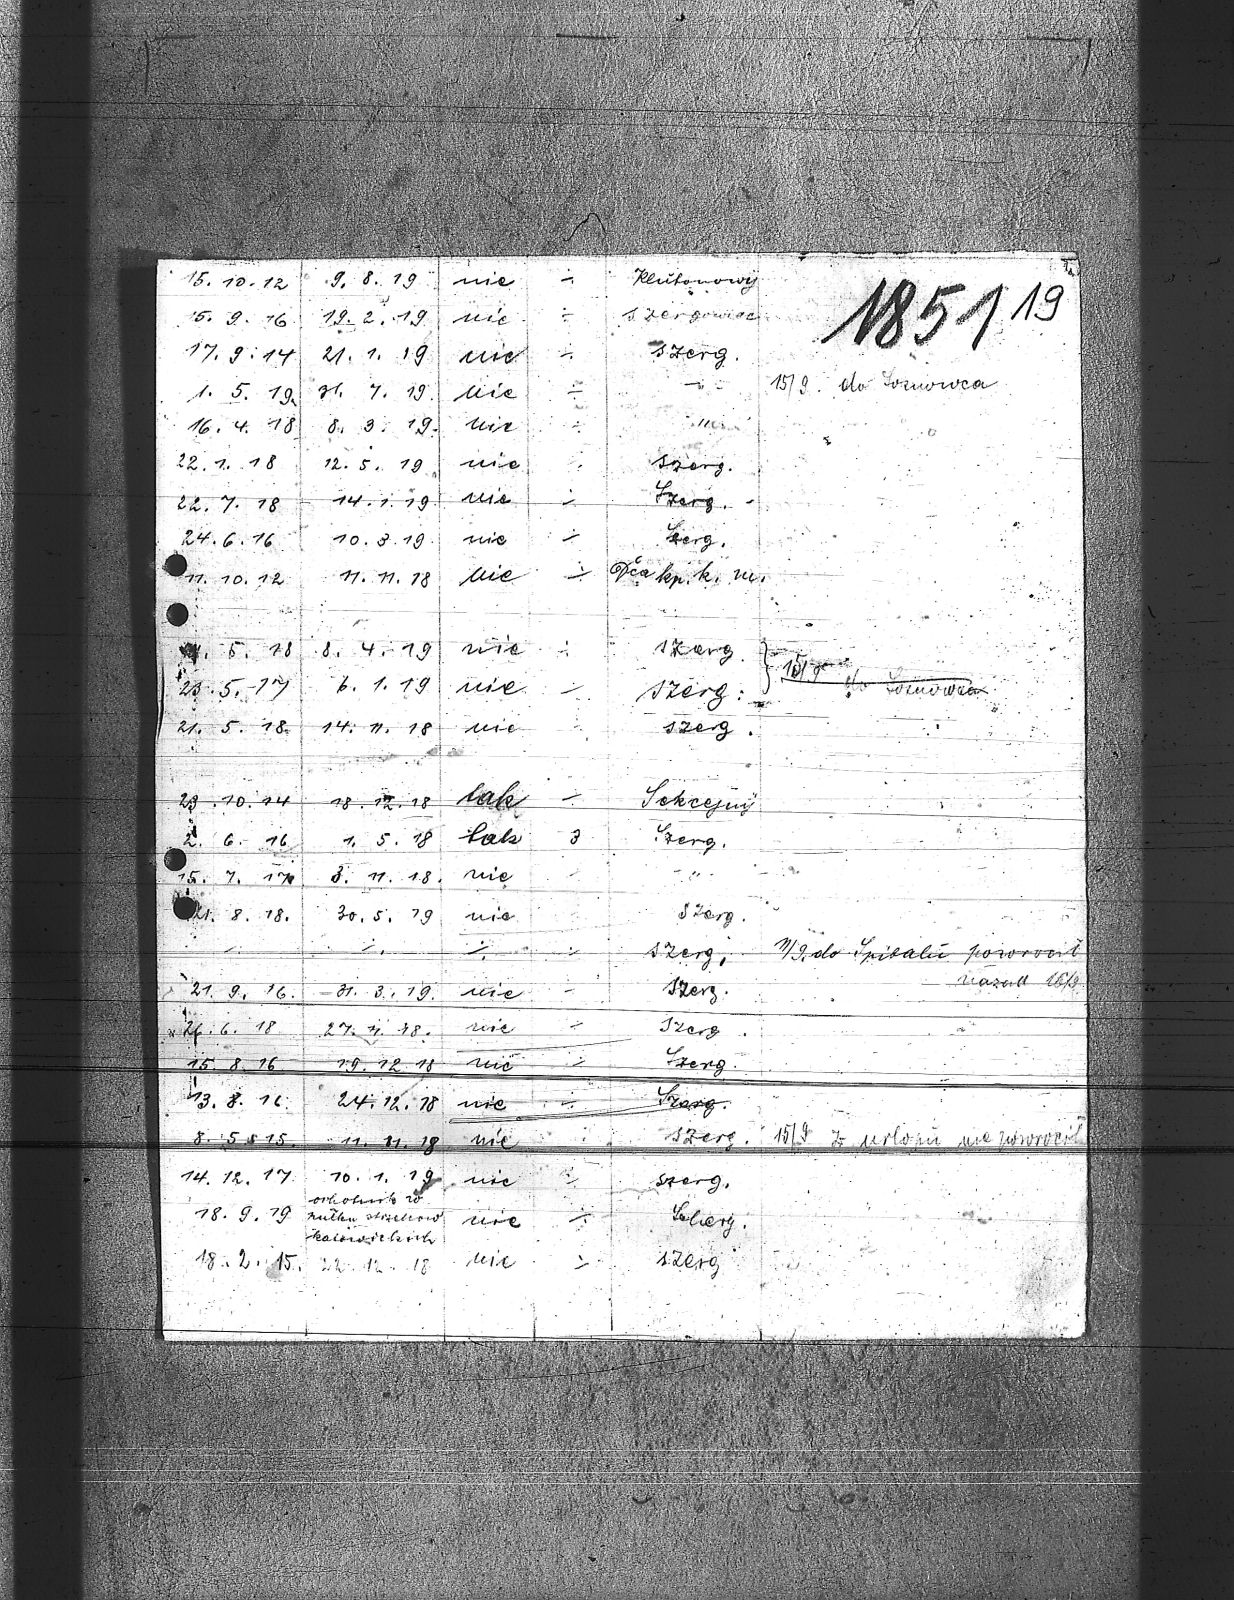 1851 19
15. 10. 12 9. 8. 19 nie ÷ Plutonowy
15. 9. 16 19. 2. 19 nie ÷ Szergowiec
17. 9. 14 21. 1. 19 nie ÷ szerg.
1. 5. 19. 31. 7. 19. nie ÷ -"- 15/9. do Sosnowca
16. 4. 18 8. 3. 19. nie ÷ "
22. 1. 18 12. 5. 19 nie ÷ szerg.
22. 7. 18 14. 1. 19 nie ÷ Szerg.
24. 6. 16 10. 3. 19 nie ÷ Szerg.
11. 10. 12 11. 11. 18 nie ÷ Dca kp. k. m.
5. 18 8. 4. 19 nie ÷ szerg. } 15/9
23. 5. 17 6. 1. 19 nie ÷ szerg. do Sosnowca
21. 5. 18. 14. 11. 18 nie szerg.
29. 10. 14 18. 12. 18 tak ÷ Sekcyjny
2. 6. 16 1. 5. 18 tak 3 Szerg.
15. 7. 17 3. 11. 18. nie -"-
21. 8. 18. 30. 5. 19 nie Szerg.
÷ ÷ ÷ szerg. 11/9. do Spitalu powrocił
nazad 16/9
21. 9. 16. 31. 3. 19. nie ÷ Szerg.
6. 18 27. 11. 18. nie ÷ Szerg.
15. 8. 16 19. 12. 18 nie ÷ Szerg.
13. 8. 16. 24. 12. 18 nie ÷ Szerg.
8. 5. 15. 11. 11. 18 nie szerg. 15/9 z urlopu nie powrocił
14. 12. 17. 10. 1. 19 nie ÷ szerg.
18. 9. 19 ochotnik w nie ÷ Szerg.
pułku strzelców
18. 2. 15. 22. 12. 18 nie ÷ szerg